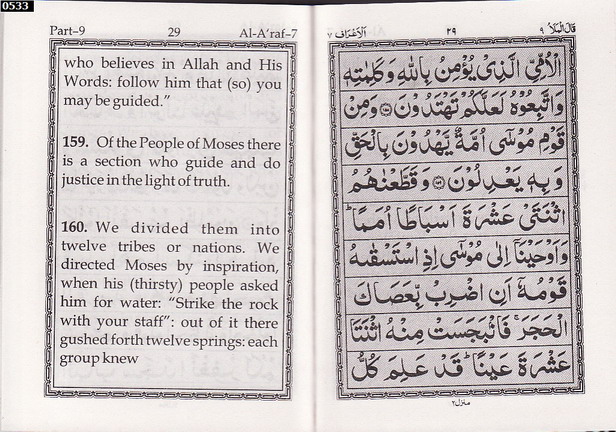 0533
Part–9 29 Al-A'raf–7
who believes in Allah and His
Words: follow him that (so) you
may be guided.”
159. Of the People of Moses there
is a section who guide and do
justice in the light of truth.
160. We divided them into
twelve tribes or nations. We
directed Moses by inspiration,
when his (thirsty) people asked
him for water: “Strike the rock
with your staff”: out of it there
gushed forth twelve springs: each
group knew
قَالَ الْمَلَاُ ٩ ٢٩ اَلْاَعْرَاف ٧
الْاُمِّيِّ الَّذِيْ يُؤْمِنُ بِاللّٰهِ وَكَلِمٰتِهٖ
وَاتَّبِعُوْهُ لَعَلَّكُمْ تَهْتَدُوْنَ ﴿١٥٨﴾ وَمِنْ
قَوْمِ مُوْسٰٓى اُمَّةٌ يَّهْدُوْنَ بِالْحَقِّ
وَبِهٖ يَعْدِلُوْنَ ﴿١٥٩﴾ وَقَطَّعْنٰهُمُ
اثْنَتَيْ عَشْرَةَ اَسْبَاطًا اُمَمًا ؕ
وَاَوْحَيْنَآ اِلٰى مُوْسٰٓى اِذِ اسْتَسْقٰىهُ
قَوْمُهٗٓ اَنِ اضْرِبْ بِّعَصَاكَ
الْحَجَرَ ۚ فَانْۢبَجَسَتْ مِنْهُ اثْنَتَا
عَشْرَةَ عَيْنًا ؕ قَدْ عَلِمَ كُلُّ
منزل ٢